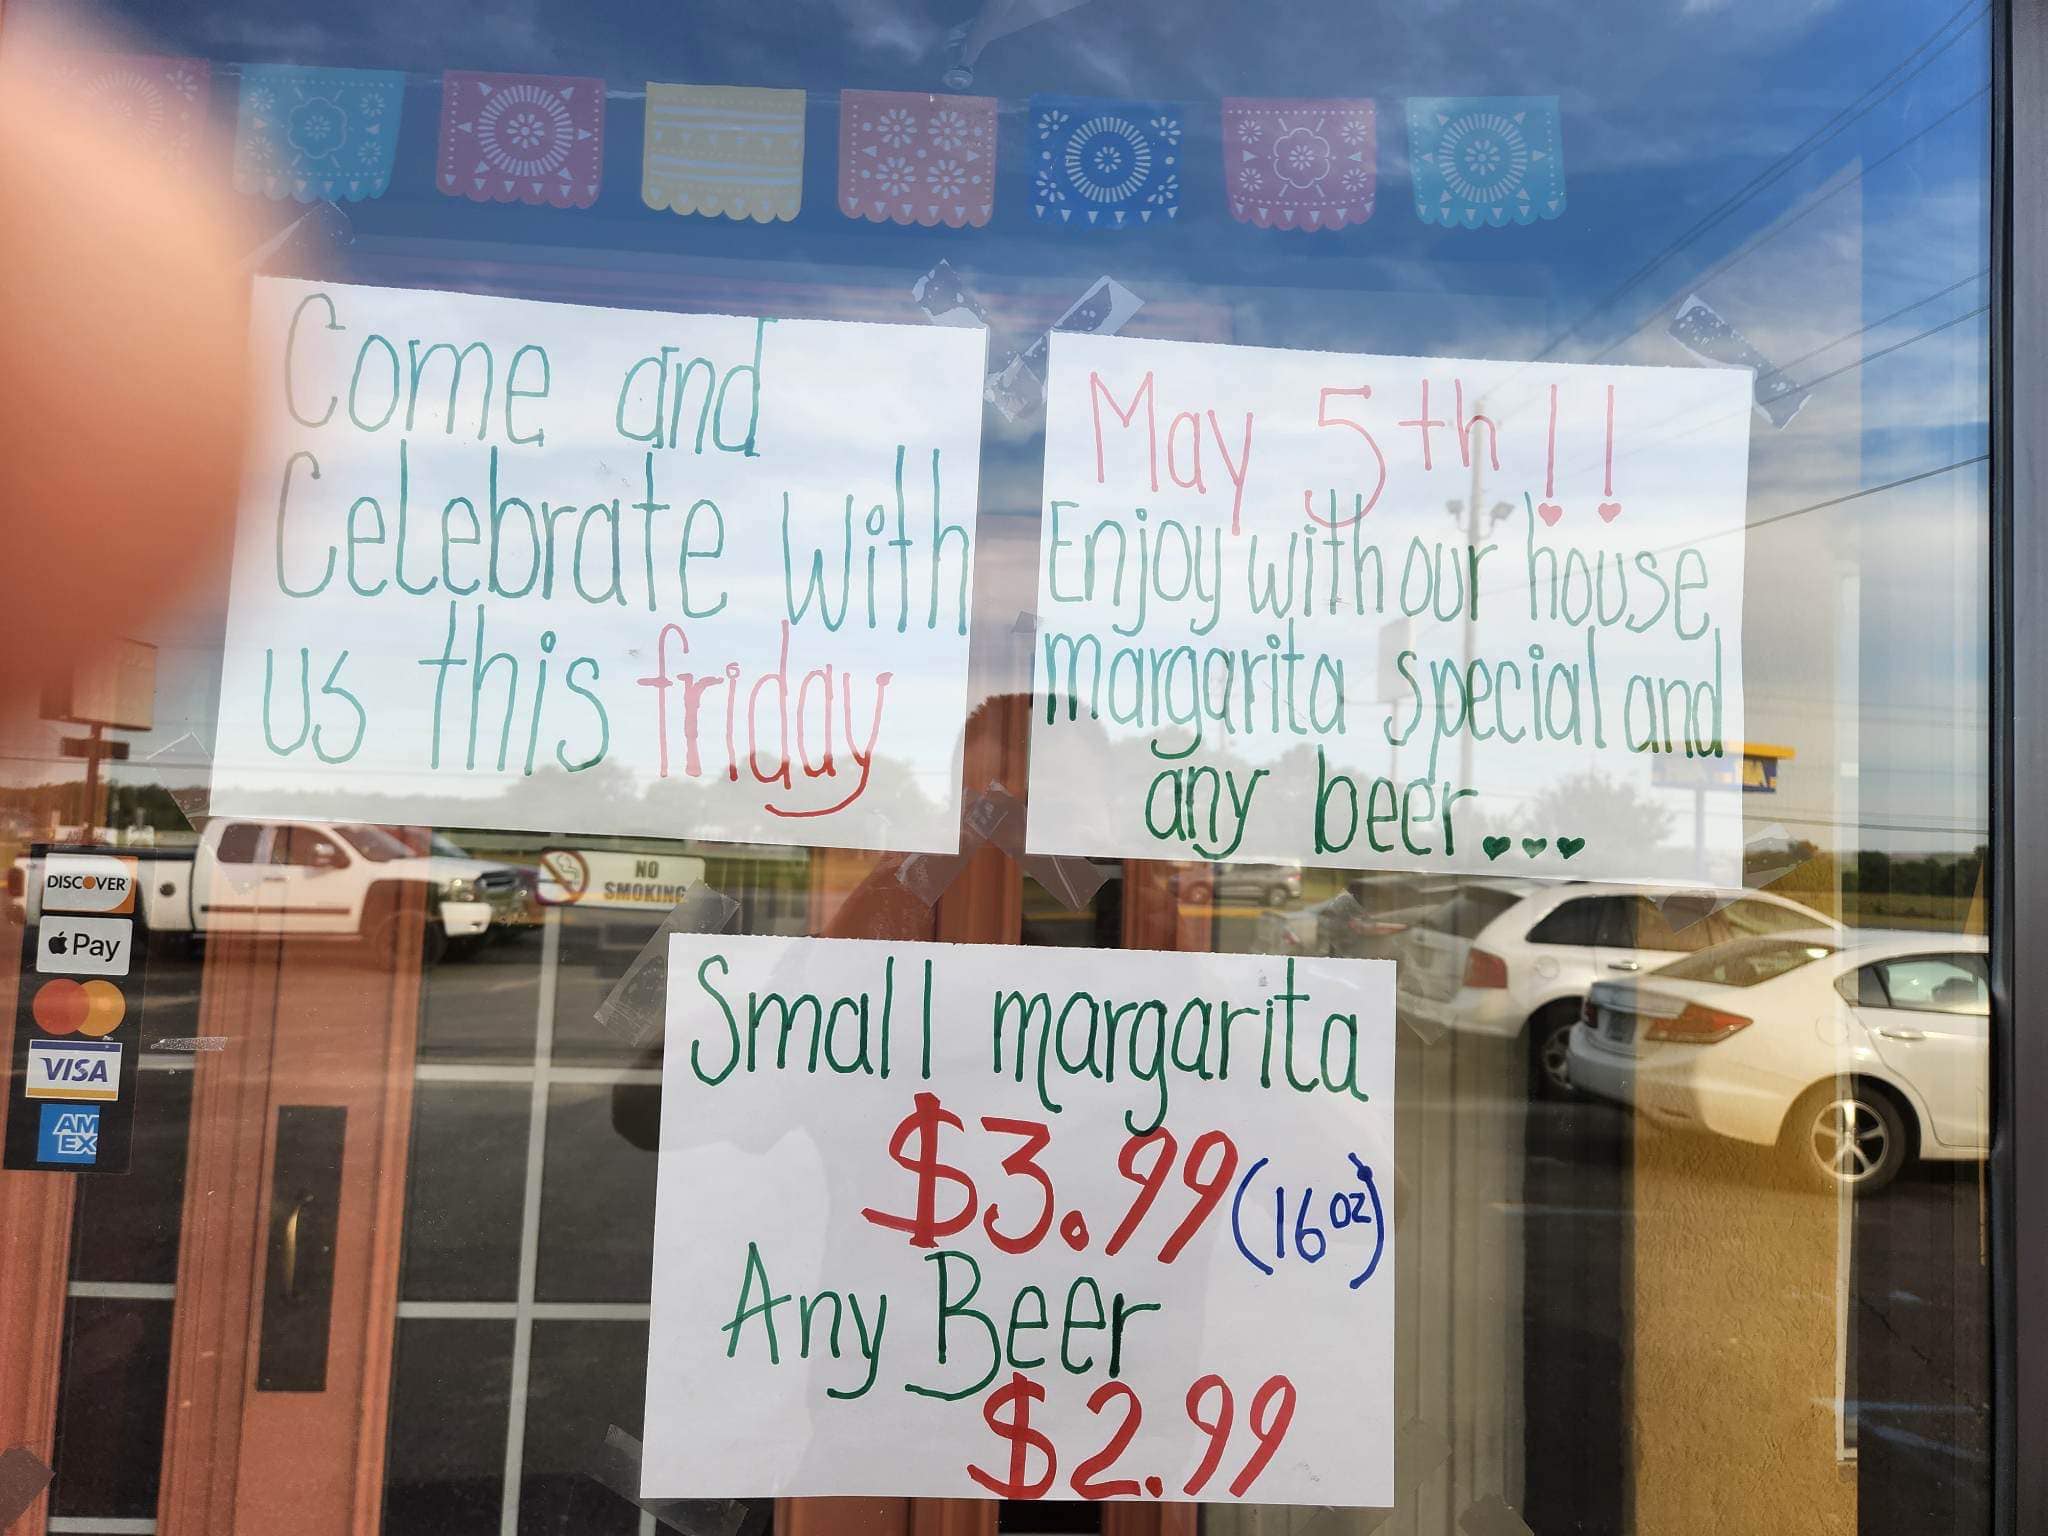 Come and
Celebrate with
us this friday
May 5th!!
Enjoy with our house
margarita special and
any beer...
NO
SMOKING
DISCOVER
Pay
VISA
AM
EX
Small margarita
$3.99 (16 oz)
Any Beer
$2.99